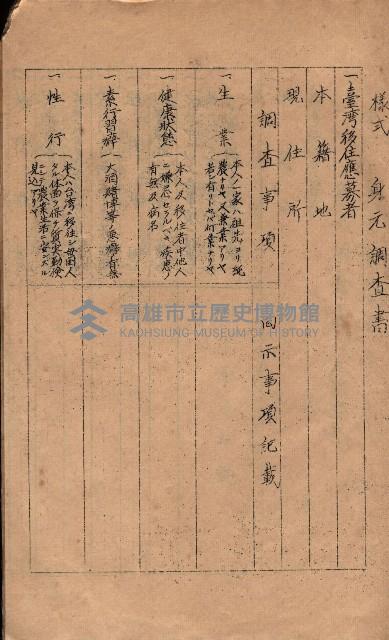 樣式　身元調査書
一、臺灣移住應募者
本籍地
現住所
調査事項　回示事項記載
一、生業
本人ノ家ハ祖先ヨリ現
農ナリヤ又兼業ナリヤ
若シ有リトセバ何業ナリヤ
一、健康狀態
本人及移住者中他人
ニ嫌忌セラルベキ疾患ノ
有無及病名
一、素行習癖
大酒賭博等ノ悪癖有無
一、性行
本人ハ台湾移住シ母国人
タル体面ヲ保チ質実勤倹
ニシ農業生活ニ安ンズル
見込アリヤ
高雄市立歷史博物館
KAOHSIUNG MUSEUM OF HISTORY